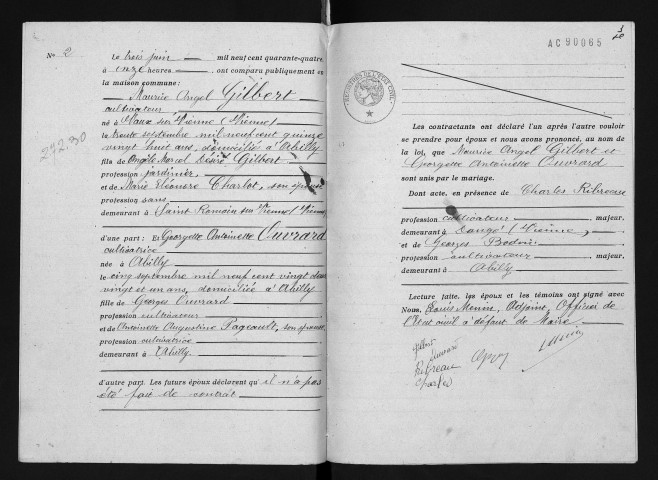 No 2
292.30
Le trois juin mil neuf cent quarante-quatre
à onze heures ont comparu publiquement en
la maison commune :
Maurice Angel Gilbert
cultivateur
né à Vaux sur Vienne (Vienne)
le trente septembre mil neuf cent quinze
vingt huit ans, domicilié à Abilly
fils de Marcel Désiré Gilbert
profession jardinier
et de Marie Eléonore Charlot, son épouse
profession sans
demeurant à Saint Romain sur Vienne (Vienne)
d'une part : Et Georgette Antoinette Ouvrard
cultivatrice
née à Abilly
le cinq septembre mil neuf cent vingt deux
vingt et un ans, domiciliée à Abilly
fille de Georges Ouvrard
profession cultivateur
et de Antoinette Augustine Pageault, son épouse
profession cultivatrice
demeurant à Abilly
d'autre part. Les futurs époux déclarent qu'il n'a pas
été fait de contrat
AC 90065
Les contractants ont déclaré l'un après l'autre vouloir
se prendre pour époux et nous avons prononcé, au nom de
la loi, que Maurice Angel Gilbert et
Georgette Antoinette Ouvrard
sont unis par le mariage.
Dont acte, en présence de Charles
profession cultivateur majeur.
demeurant à Dangé (Vienne)
et de Georges
profession cultivateur majeur,
demeurant à Abilly
Lecture faite, les époux et les témoins ont signé avec
Nous, Louis Adjoint, Officier de
l'Etat civil à défaut de Maire
Gilbert
Ouvrard
Charles